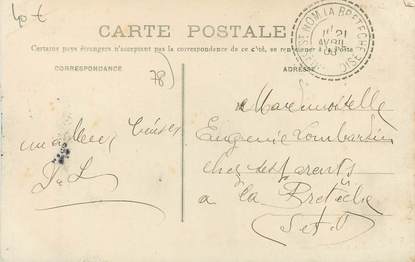 40 €
CARTE POSTALE
Certains pays étrangers n'acceptant pas la correspondance de ce côté, se renseigner à la Poste
CORRESPONDANCE
ADRESSE
78)
ST-NOM-LA-BRETECHE
21
AVRIL
OISE
Mademoiselle
Eugenie Lombardin
chez ses parents
a la Breteche
(S et O)